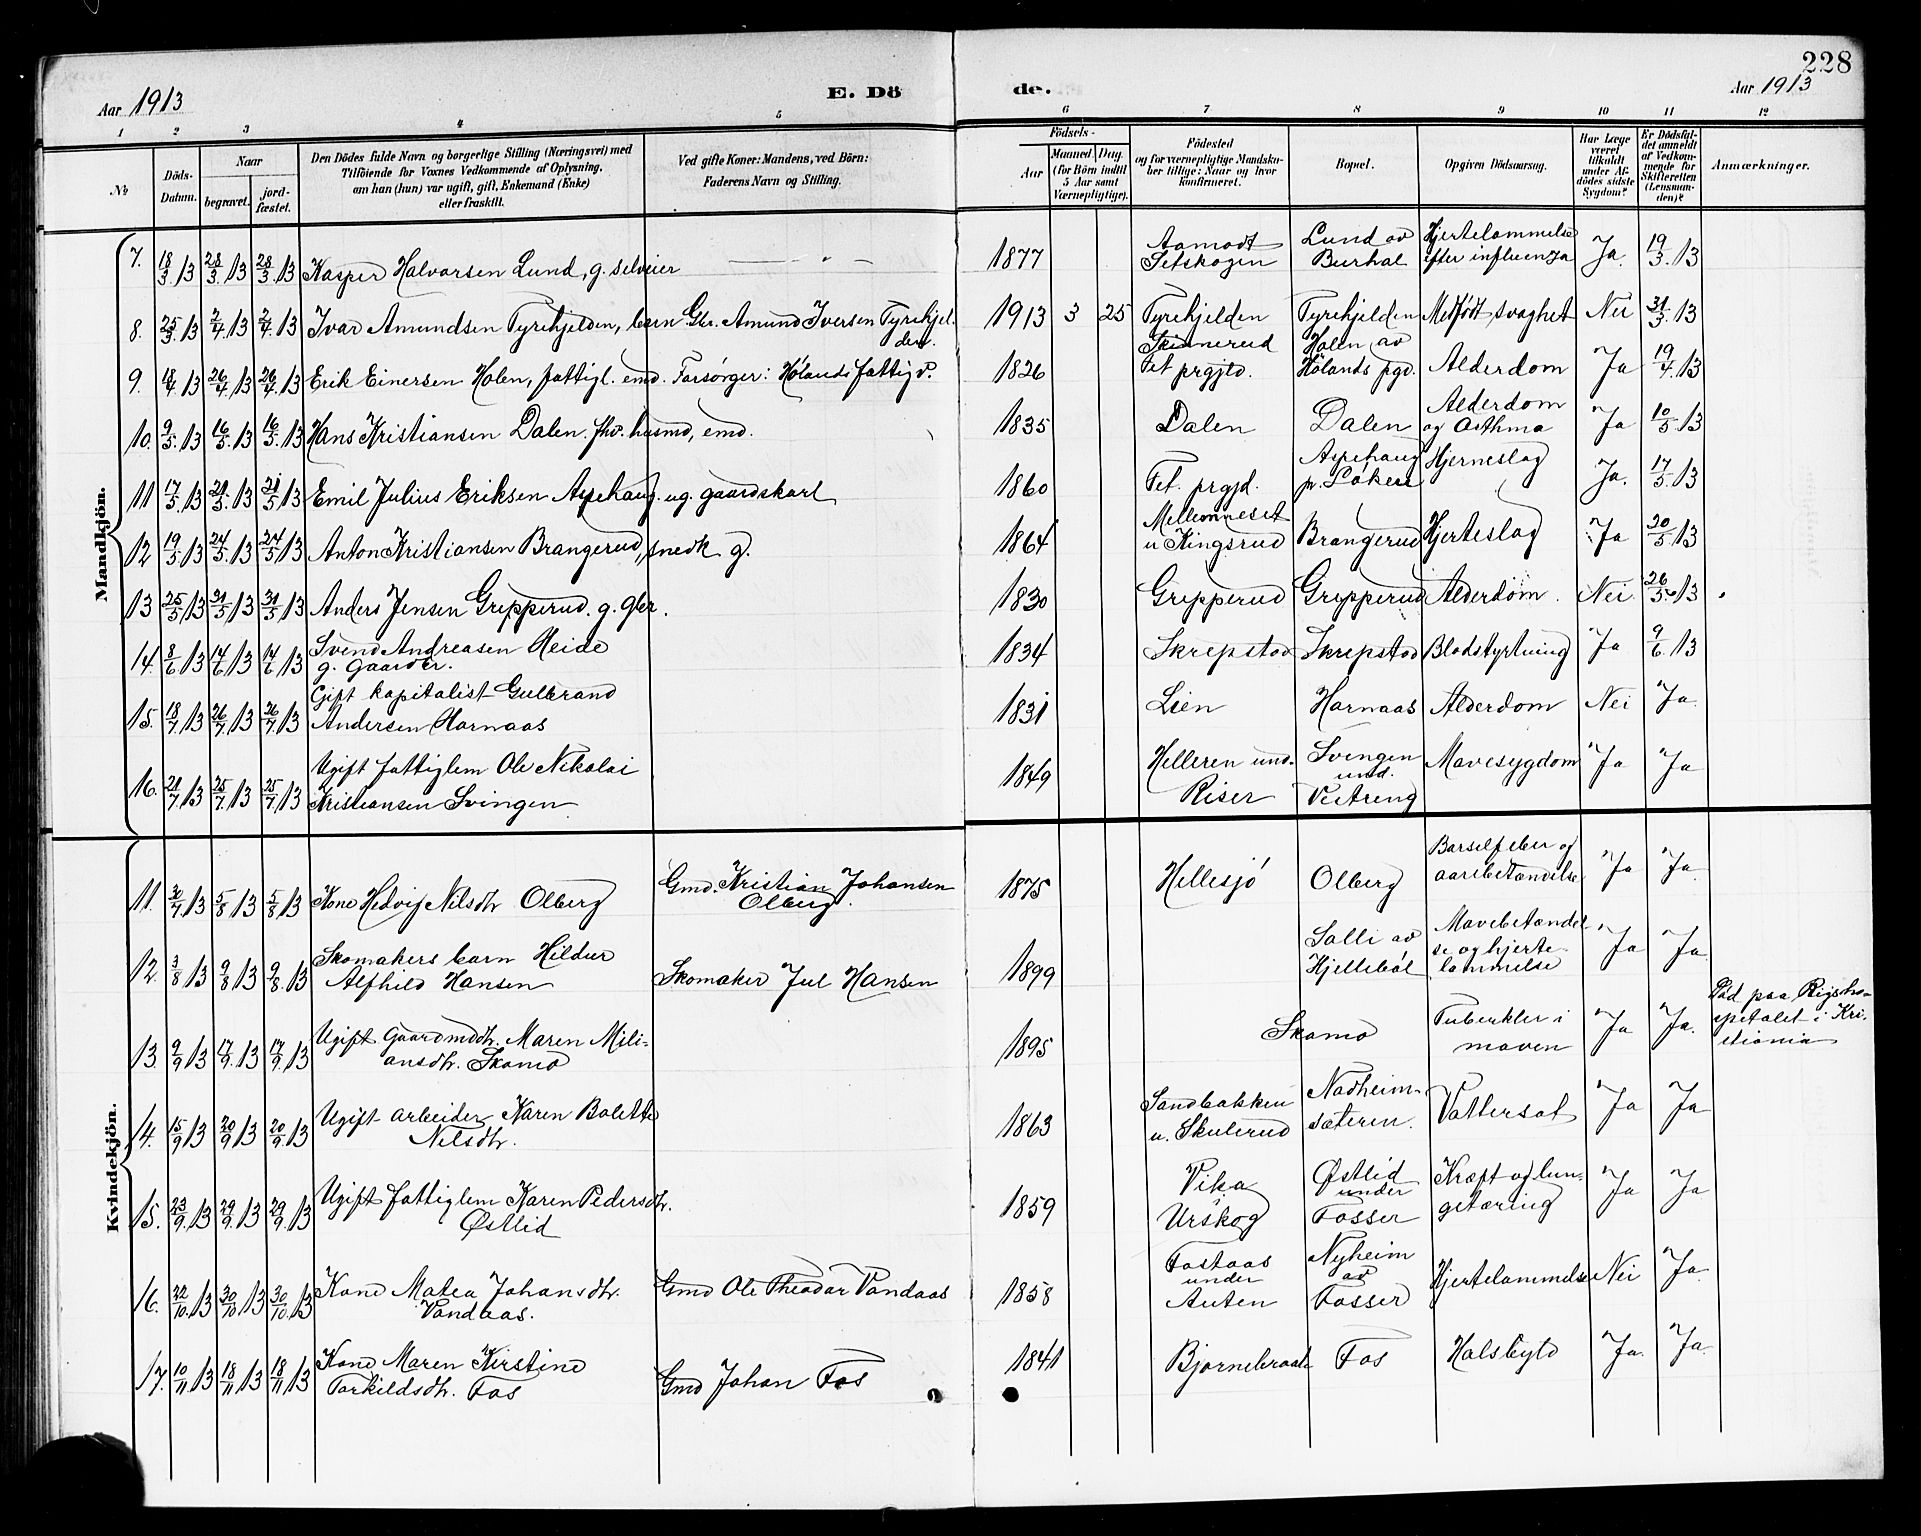 228
Aar 1913
E. Dö
de.
Aar 1913
1 2 3 4 5 6 7 8 9 10 11 12
No
Döds-
Datum.
Naar
begravet.
jord-
fæstet.
Den Dödes fulde Navn og borgerlige Stilling (Næringsvei) med
Tilföiende for Voxnes Vedkommende af Oplysning,
om han (hun) var ugift, gift, Enkemand (Enke)
eller fraskilt.
Ved gifte Koner: Mandens, ved Börn:
Faderens Navn og Stilling.
Födsels-
Aar
Maaned. Dag.
(for Börn indtil
5 Aar samt
Værnepligtige).
Födested
og for værnepligtige Mandsku-
ber tillige: Naar og hvor
konfirmeret.
Bopæl.
Opgiven Dödsaarsag.
Har Læge
været
tilkaldt
under Af-
dödes sidste
Sygdom?
Er Dödsfal-
det anmeldt
af Vedkom-
mende for
Skifteretten
(Lensman-
den)?
Anmærkninger.
Mandkjön.
7. 18/3 13 28/3 13 28/3 13 Kasper Halvorsen Lund, g. selveier — " — 1877 Aamodt Setskogen Lund av Burhol Hjertelammelse efter influenza Ja. 19/3 13
8. 25/3 13 2/4 13 2/4 13 Ivar Amundsen Tyrihjelden, barn Gbr. Amund Iversen Tyrihjel- den. 1913 3 25 Tyrihjelden Tyrihjelden Medfødt svaghet Nei 31/3 13
9. 18/4 13 26/4 13 26/4 13 Erik Einersen Holen, fattigl. emd. Forsørger: Hølands fattigv. 1826 Skinnerud Fet prgjld. Holen av Hølands pgd. Alderdom Ja 19/4 13
10. 9/5 13 16/5 13 16/5 13 Hans Kristiansen Dalen. fhv. husmd, emd. 1835 Dalen Dalen Alderdom og Asthma Ja 10/5 13
11 17/5 13 21/5 13 21/5 13 Emil Julius Eriksen Aspehaug. ug. gaardskarl 1860 Fet. prgjd. Aspehaug p. Løken Hjerneslag Ja. 17/5 13
12 19/5 13 24/5 13 24/5 13 Anton Kristiansen Brangerud, snedk g. 1864 Mellomneset u Kingsrud Brangerud Hjerteslag Ja 20/5 13
13 25/5 13 31/5 13 31/5 13 Anders Jensen Gripperud. g. gbr. 1830 Gripperud Gripperud Alderdom. Nei 26/5 13
14. 8/6 13 14/6 13 14/6 13 Svend Andreasen Heide g. gaardbr. 1834 Skrepstad Skrepstad Blodstyrtning Ja 9/6 13
15. 18/7 13 26/7 13 26/7 13 Gift kapitalist Gulbrand Andersen Harnaas 1831 Lien Harnaas Alderdom Nei Ja
16. 21/7 13 25/7 13 25/7 13 Ugift fattiglem Ole Nikolai Kristiansen Svingen 1849 Helleren und. Riser Svingen und. Veitreng Mavesygdom Ja Ja
Kvindekjön.
11. 30/7 13 5/8 13 5/8 13 Kone Hedvig Nilsdtr Olberg Gmd. Kristian Johansen Olberg. 1875 Hellesjø Olberg Barselfeber og aarebetændelse Ja Ja
12. 3/8 13 9/8 13 9/8 13 Skomakers barn Hildur Alfhild Hansen Skomaker Jul Hansen 1899 Solli av Hjellebøl Mavebetændel- se og hjerte- lammelse Ja Ja
13. 9/9 13 17/9 13 17/9 13 Ugift gaardmdtr. Maren Mili- ansdtr. Skamo 1895 Skamo Tuberkler i maven Ja Ja Død paa Rigsho- spitalet i Kri- stiania
14. 15/9 13 20/9 13 20/9 13 Ugift arbeider Karen Bolette Nilsdtr. 1863 Sandbakken u. Skulerud Nadheim- sæteren. Vattersot Ja Ja
15. 23/9 13 29/9 13 29/9 13 Ugift fattiglem Karen Pedersdtr. Østlid 1859 Vika Urskog Østlid under Fosser Kræft og lun- getæring Ja Ja
16. 22/10 13 30/10 13 30/10 13 Kone Matea Johansdtr. Vandaas. Gmd Ole Theodor Vandaas 1858 Fostaas under Auten Nyheim av Fosser Hjertelammelse Nei Ja
17. 10/11 13 18/11 13 18/11 13 Kone Maren Kirstine Torkildsdtr. Fos Gmd Johan Fos 1841 Bjørnebraate Fos Halsbyld Ja Ja